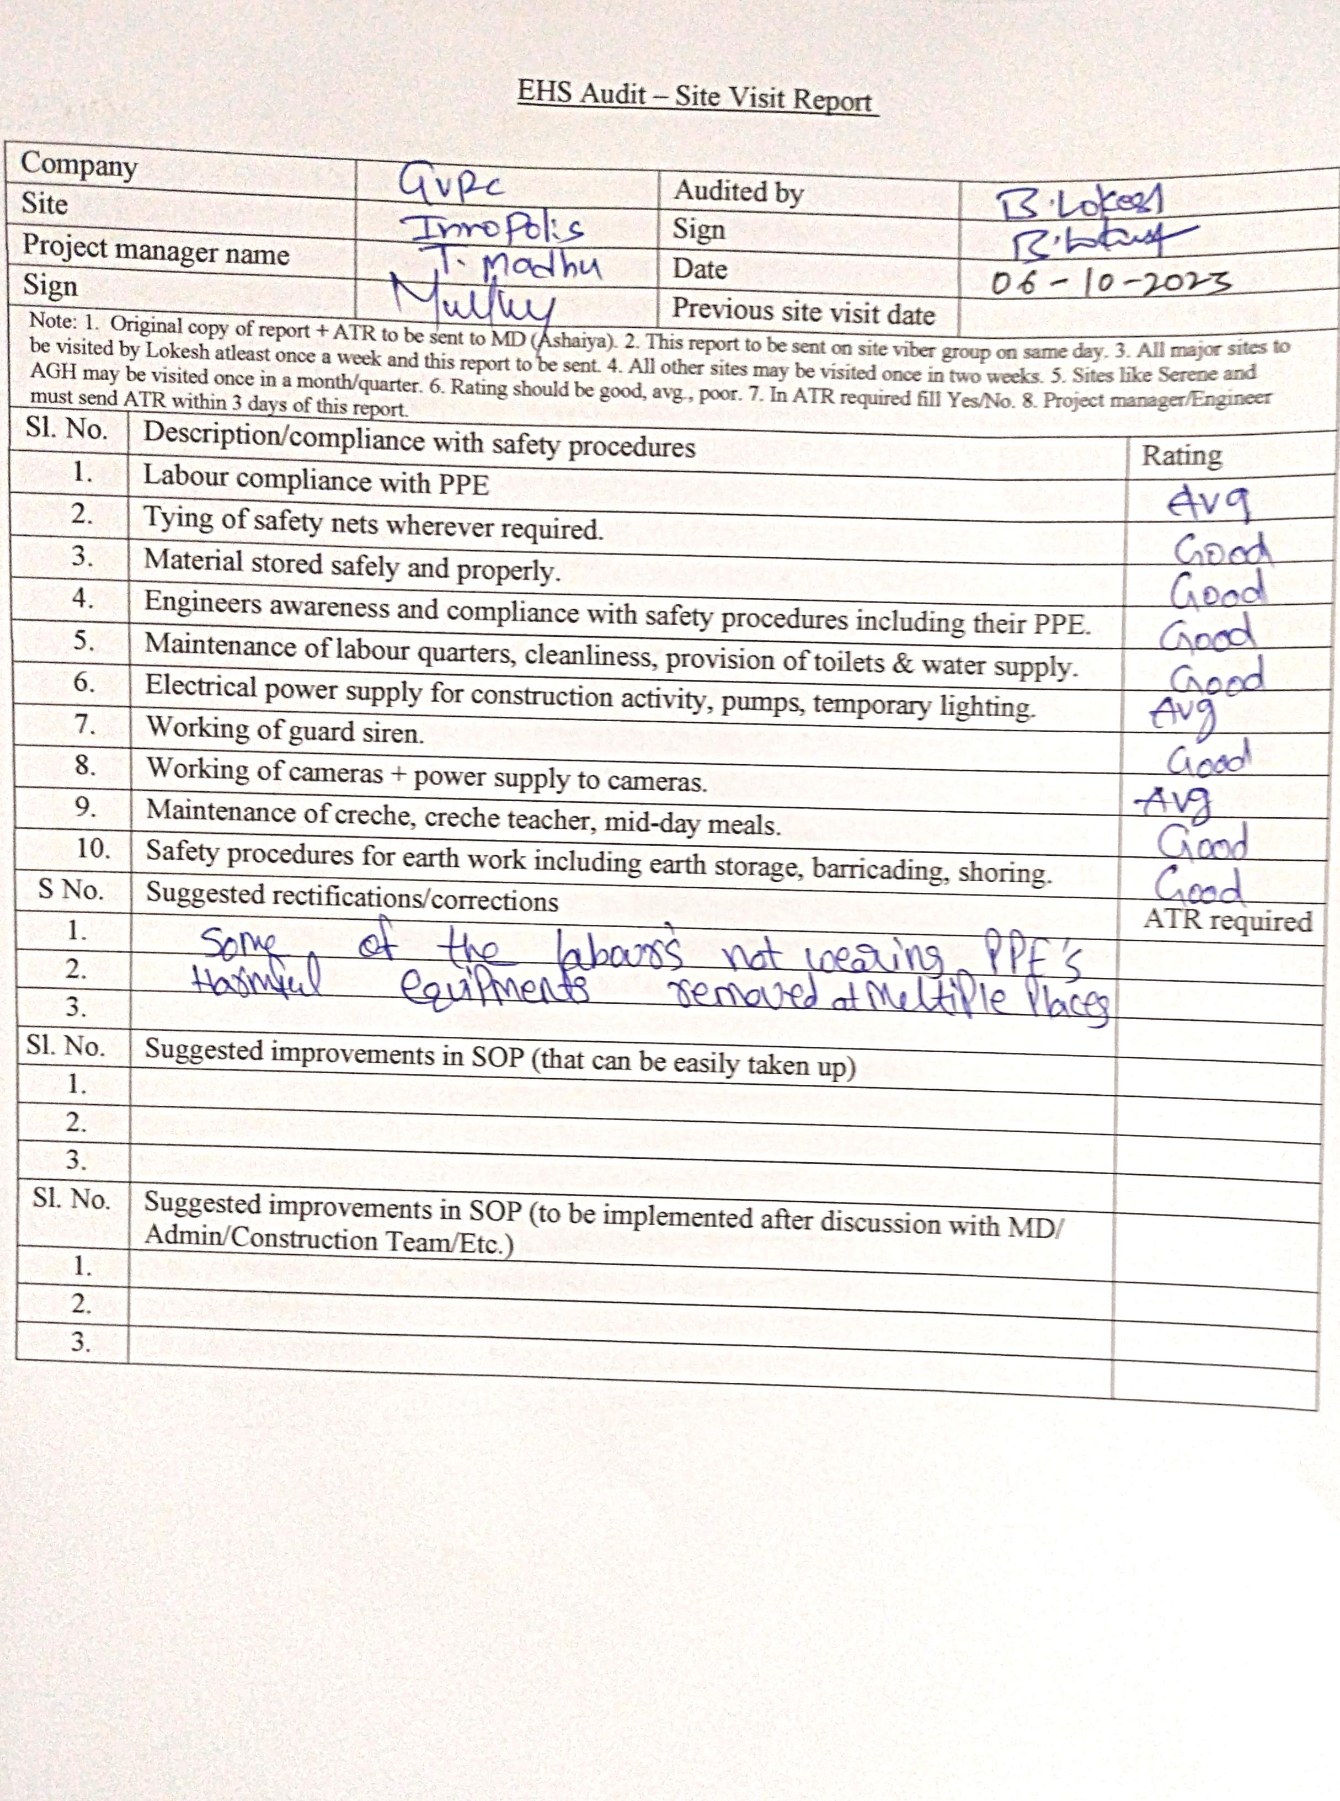 EHS Audit – Site Visit Report
Company GVRC Audited by B.Lokesh
Site Innopolis Sign B.Lokesh
Project manager name T. Madhu Date 06-10-2023
Sign Previous site visit date
Note: 1. Original copy of report + ATR to be sent to MD (Ashaiya). 2. This report to be sent on site viber group on same day. 3. All major sites to
be visited by Lokesh atleast once a week and this report to be sent. 4. All other sites may be visited once in two weeks. 5. Sites like Serene and
AGH may be visited once in a month/quarter. 6. Rating should be good, avg., poor. 7. In ATR required fill Yes/No. 8. Project manager/Engineer
must send ATR within 3 days of this report.
Sl. No. Description/compliance with safety procedures Rating
1. Labour compliance with PPE Avg
2. Tying of safety nets wherever required. Good
3. Material stored safely and properly. Good
4. Engineers awareness and compliance with safety procedures including their PPE. Good
5. Maintenance of labour quarters, cleanliness, provision of toilets & water supply. Good
6. Electrical power supply for construction activity, pumps, temporary lighting. Avg
7. Working of guard siren. Good
8. Working of cameras + power supply to cameras. Avg
9. Maintenance of creche, creche teacher, mid-day meals. Good
10. Safety procedures for earth work including earth storage, barricading, shoring. Good
S No. Suggested rectifications/corrections ATR required
1. Some of the labours not wearing PPE's
2. Harmful equipments removed at Meltiple Places
3.
Sl. No. Suggested improvements in SOP (that can be easily taken up)
1.
2.
3.
Sl. No. Suggested improvements in SOP (to be implemented after discussion with MD/
Admin/Construction Team/Etc.)
1.
2.
3.